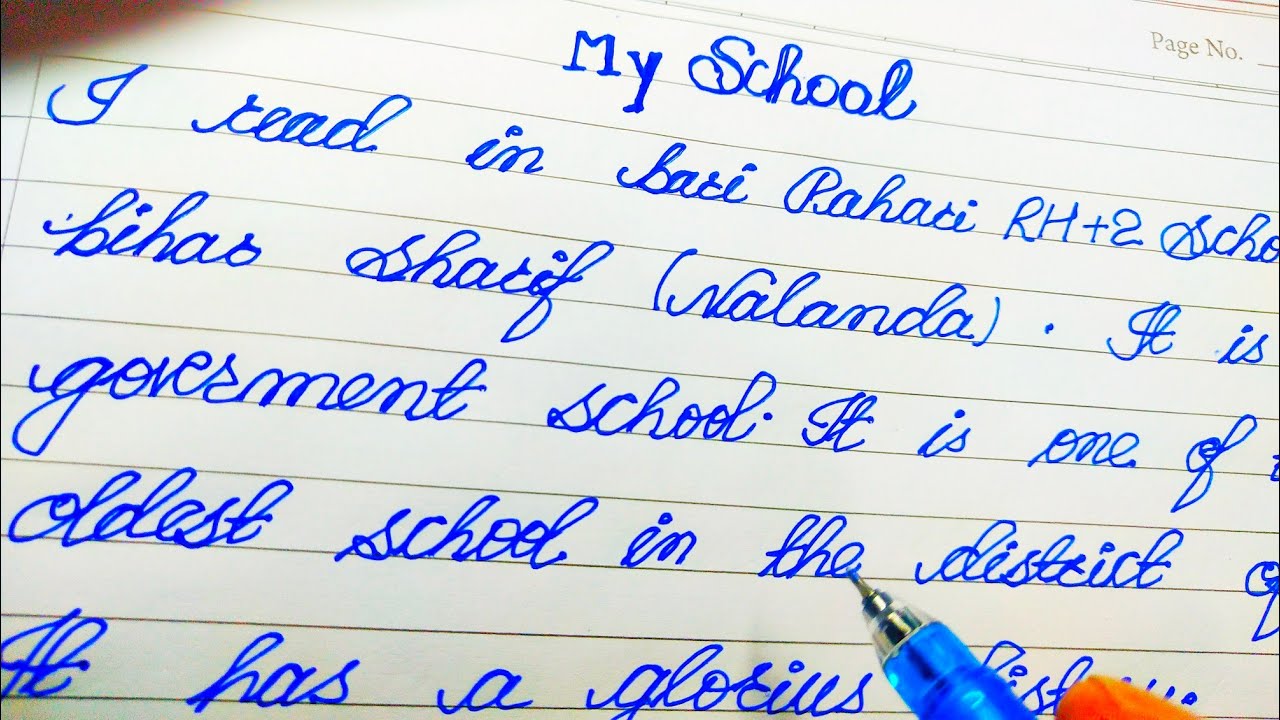 Page No.
My School
I read in bari Pahari RH+2 Scho
bihar Sharif (Nalanda). It is
goverment school. It is one of
oldest school in the district of
It has a glorius